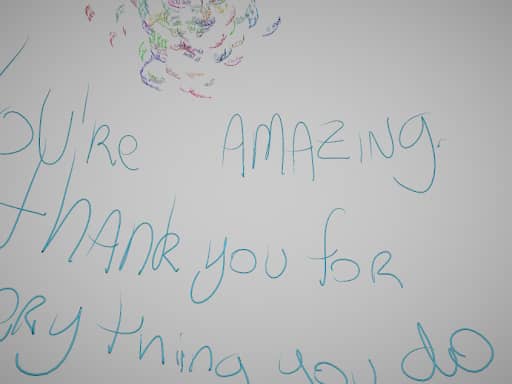 You're AMAZING.
thank you for
every thing you do